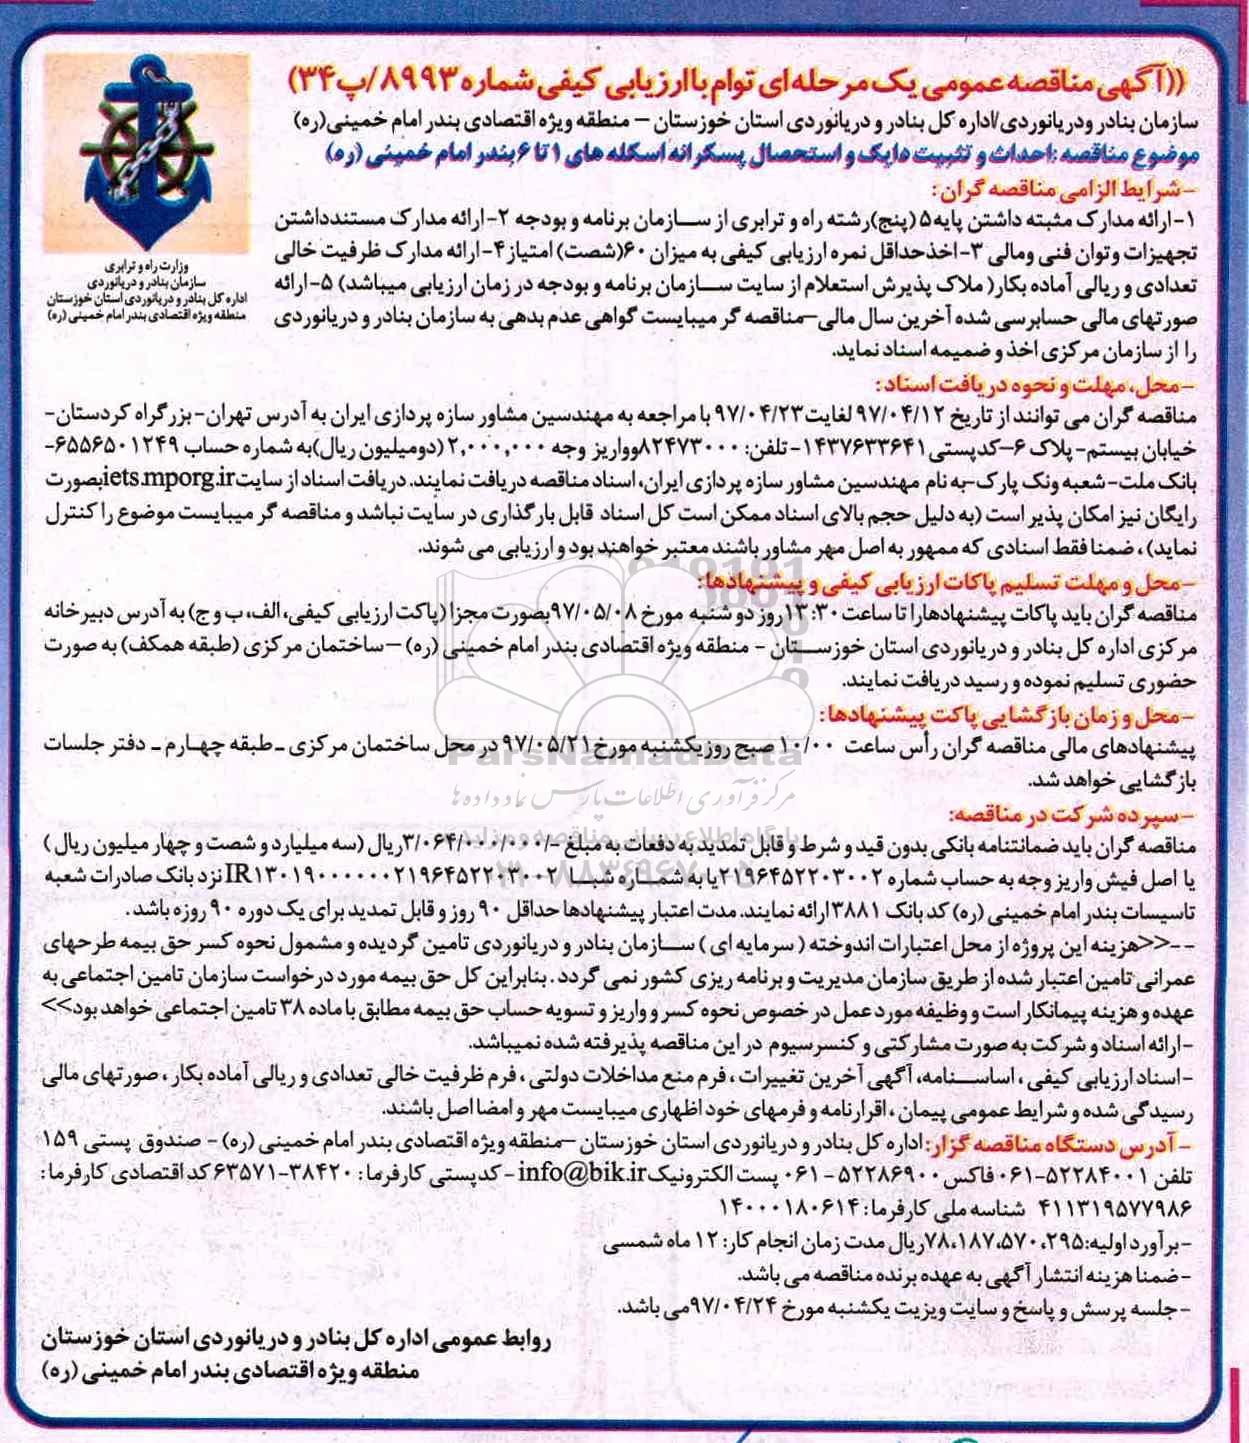 ((آگهی مناقصه عمومی یک مرحله‌ای توام با ارزیابی کیفی شماره ۸۹۹۳/پ۳۴))
سازمان بنادر ودریانوردی/اداره کل بنادر و دریانوردی استان خوزستان – منطقه ویژه اقتصادی بندر امام خمینی(ره)
موضوع مناقصه :احداث و تثبیت دایک و استحصال پسکرانه اسکله های ۱ تا ۶ بندر امام خمینی (ره)
وزارت راه و ترابری
سازمان بنادر و دریانوردی
اداره کل بنادر و دریانوردی استان خوزستان
منطقه ویژه اقتصادی بندر امام خمینی (ره)
-شرایط الزامی مناقصه گران:
۱-ارائه مدارک مثبته داشتن پایه ۵ (پنج)رشته راه و ترابری از سازمان برنامه و بودجه ۲-ارائه مدارک مستندداشتن
تجهیزات وتوان فنی ومالی ۳-اخذحداقل نمره ارزیابی کیفی به میزان ۶۰(شصت) امتیاز ۴-ارائه مدارک ظرفیت خالی
تعدادی و ریالی آماده بکار( ملاک پذیرش استعلام از سایت سازمان برنامه و بودجه در زمان ارزیابی میباشد) ۵-ارائه
صورتهای مالی حسابرسی شده آخرین سال مالی–مناقصه گر میبایست گواهی عدم بدهی به سازمان بنادر و دریانوردی
را از سازمان مرکزی اخذ و ضمیمه اسناد نماید.
-محل، مهلت و نحوه دریافت اسناد:
مناقصه گران می توانند از تاریخ ۹۷/۰۴/۱۲ لغایت ۹۷/۰۴/۲۳ با مراجعه به مهندسین مشاور سازه پردازی ایران به آدرس تهران-بزرگراه کردستان-
خیابان بیستم- پلاک ۶–کدپستی ۱۴۳۷۶۳۳۶۴۱-تلفن: ۸۲۴۷۳۰۰۰وواریز وجه ۲,۰۰۰,۰۰۰ (دومیلیون ریال)به شماره حساب ۶۵۵۶۵۰۱۲۴۹-
بانک ملت-شعبه ونک پارک-به نام مهندسین مشاور سازه پردازی ایران، اسناد مناقصه دریافت نمایند. دریافت اسناد از سایت iets.mporg.irبصورت
رایگان نیز امکان پذیر است (به دلیل حجم بالای اسناد ممکن است کل اسناد قابل بارگذاری در سایت نباشد و مناقصه گر میبایست موضوع را کنترل
نماید)، ضمنا فقط اسنادی که ممهور به اصل مهر مشاور باشند معتبر خواهند بود و ارزیابی می شوند.
-محل و مهلت تسلیم پاکات ارزیابی کیفی و پیشنهادها:
مناقصه گران باید پاکات پیشنهادها را تا ساعت ۱۳:۳۰ روز دو شنبه مورخ ۹۷/۰۵/۰۸بصورت مجزا (پاکت ارزیابی کیفی، الف، ب و ج) به آدرس دبیرخانه
مرکزی اداره کل بنادر و دریانوردی استان خوزستان – منطقه ویژه اقتصادی بندر امام خمینی (ره) –ساختمان مرکزی (طبقه همکف) به صورت
حضوری تسلیم نموده و رسید دریافت نمایند.
-محل و زمان بازگشایی پاکت پیشنهادها:
پیشنهادهای مالی مناقصه گران رأس ساعت ۱۰/۰۰ صبح روز یکشنبه مورخ ۹۷/۰۵/۲۱ در محل ساختمان مرکزی ـ طبقه چهارم ـ دفتر جلسات
بازگشایی خواهد شد.
ParsNamadData
مرکز فرآوری اطلاعات پارس نماد داده ها
-سپرده شرکت در مناقصه:
پایگاه اطلاع رسانی مناقصه و مزایده
مناقصه گران باید ضمانتنامه بانکی بدون قید و شرط و قابل تمدید به دفعات به مبلغ -/۳/۰۶۴/۰۰۰/۰۰۰ریال (سه میلیارد و شصت و چهار میلیون ریال )
یا اصل فیش واریز وجه به حساب شماره ۲۱۹۶۴۵۲۲۰۳۰۰۲یا به شماره شبا IR۱۳۰۱۹۰۰۰۰۰۰۰۲۱۹۶۴۵۲۲۰۳۰۰۲ نزد بانک صادرات شعبه
تاسیسات بندر امام خمینی (ره) کد بانک ۳۸۸۱ارائه نمایند. مدت اعتبار پیشنهادها حداقل ۹۰ روز و قابل تمدید برای یک دوره ۹۰ روزه باشد .
--<<هزینه این پروژه از محل اعتبارات اندوخته ( سرمایه ای ) سازمان بنادر و دریانوردی تامین گردیده و مشمول نحوه کسر حق بیمه طرحهای
عمرانی تامین اعتبار شده از طریق سازمان مدیریت و برنامه ریزی کشور نمی گردد . بنابراین کل حق بیمه مورد درخواست سازمان تامین اجتماعی به
عهده و هزینه پیمانکار است و وظیفه مورد عمل در خصوص نحوه کسر و واریز و تسویه حساب حق بیمه مطابق با ماده ۳۸ تامین اجتماعی خواهد بود>>
-ارائه اسناد و شرکت به صورت مشارکتی و کنسرسیوم در این مناقصه پذیرفته شده نمیباشد.
-اسناد ارزیابی کیفی ، اساسنامه، آگهی آخرین تغییرات ، فرم منع مداخلات دولتی ، فرم ظرفیت خالی تعدادی و ریالی آماده بکار ، صورتهای مالی
رسیدگی شده و شرایط عمومی پیمان ، اقرارنامه و فرمهای خود اظهاری میبایست مهر و امضا اصل باشند.
-آدرس دستگاه مناقصه گزار: اداره کل بنادر و دریانوردی استان خوزستان –منطقه ویژه اقتصادی بندر امام خمینی (ره) – صندوق پستی ۱۵۹
تلفن ۵۲۲۸۴۰۰۱-۰۶۱ فاکس ۵۲۲۸۶۹۰۰ – ۰۶۱ پست الکترونیک info@bik.ir – کدپستی کارفرما: ۳۸۴۲۰-۶۳۵۷۱ کد اقتصادی کارفرما:
۴۱۱۳۱۹۵۷۷۹۸۶ شناسه ملی کارفرما: ۱۴۰۰۰۱۸۰۶۱۴
-برآورد اولیه:۷۸،۱۸۷،۵۷۰،۲۹۵ریال مدت زمان انجام کار: ۱۲ ماه شمسی
-ضمنا هزینه انتشار آگهی به عهده برنده مناقصه می باشد.
-جلسه پرسش و پاسخ و سایت ویزیت یکشنبه مورخ ۹۷/۰۴/۲۴می باشد.
روابط عمومی اداره کل بنادر و دریانوردی استان خوزستان
منطقه ویژه اقتصادی بندر امام خمینی (ره)